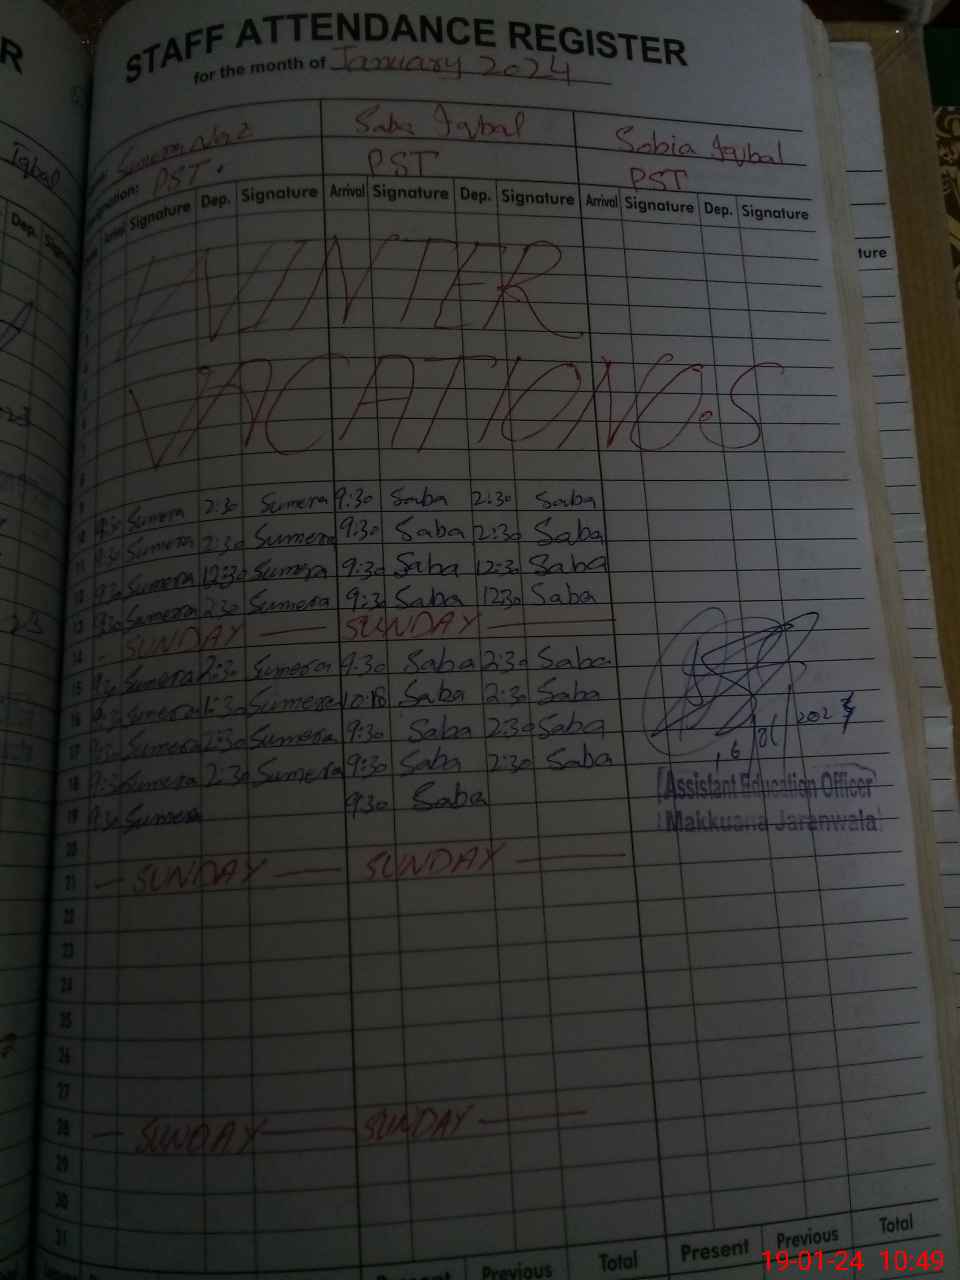 R
STAFF ATTENDANCE REGISTER
for the month of January 2024
Iqbal
Sumera Saba Iqbal Sobia Iqbal
PST. PST PST
Dep. Signature Dep. Signature Arrival Signature Dep. Signature Arrival Signature Dep. Signature
ture
WINTER
VACATIONS
9:30 Sumera 2:30 Sumera 9:30 Saba 2:30 Saba
9:30 Sumera 2:30 Sumera 9:30 Saba 2:30 Saba
9:30 Sumera 12:30 Sumera 9:30 Saba 12:30 Saba
9:30 Sumera 2:30 Sumera 9:30 Saba 1230 Saba
SUNDAY SUNDAY
14
15 9:30 Sumera 2:30 Sumera 9:30 Saba 2:30 Saba
16 Sumera Sumera Saba 2:30 Saba
17 9:30 Sumera 2:30 Sumera 9:30 Saba 2:30 Saba
18 9:30 Sumera 2:30 Sumera 9:30 Saba 2:30 Saba
19 9:30 Sumera 9:30 Saba
Assistant Education Officer
Makkuana Jaranwala
20
21 SUNDAY SUNDAY
22
23
24
25
26
27
28 SUNDAY SUNDAY
29
30
31
Previous Total Present Previous Total
19-01-24 10:49